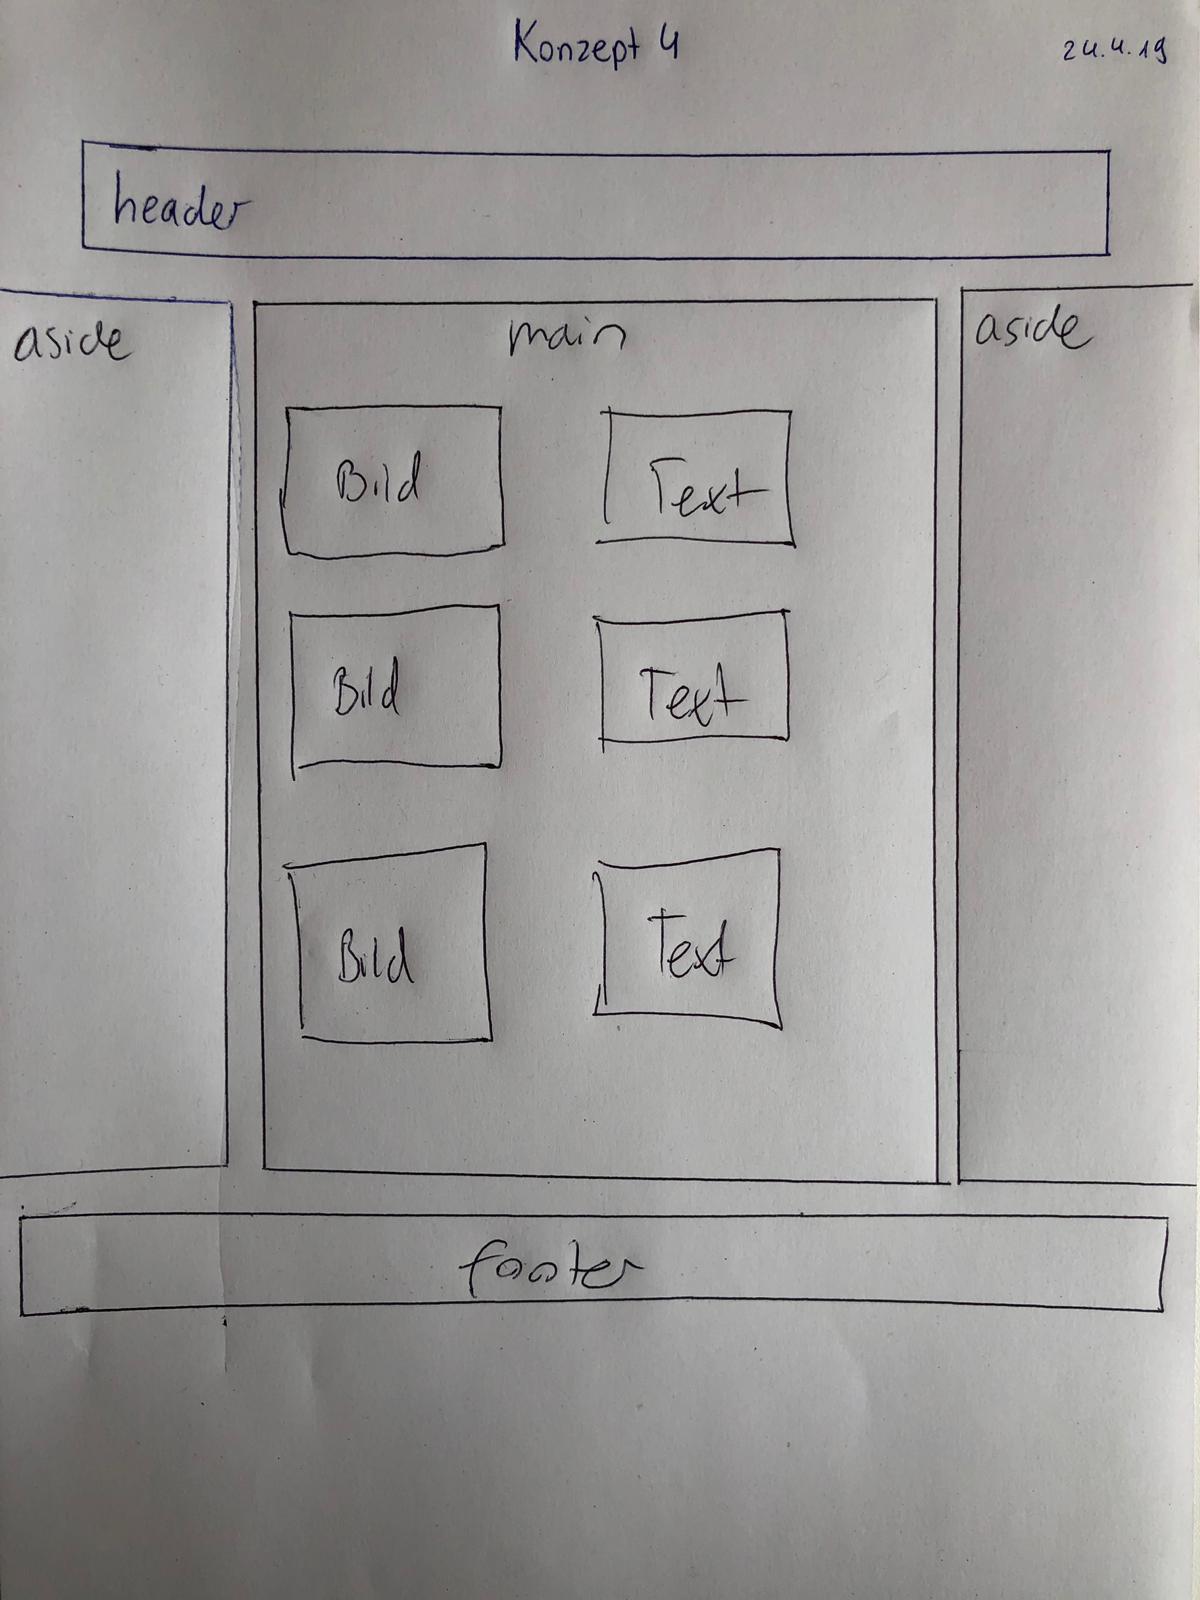 Konzept 4
24.4.19
header
aside
main
aside
Bild
Text
Bild
Text
Bild
Text
footer